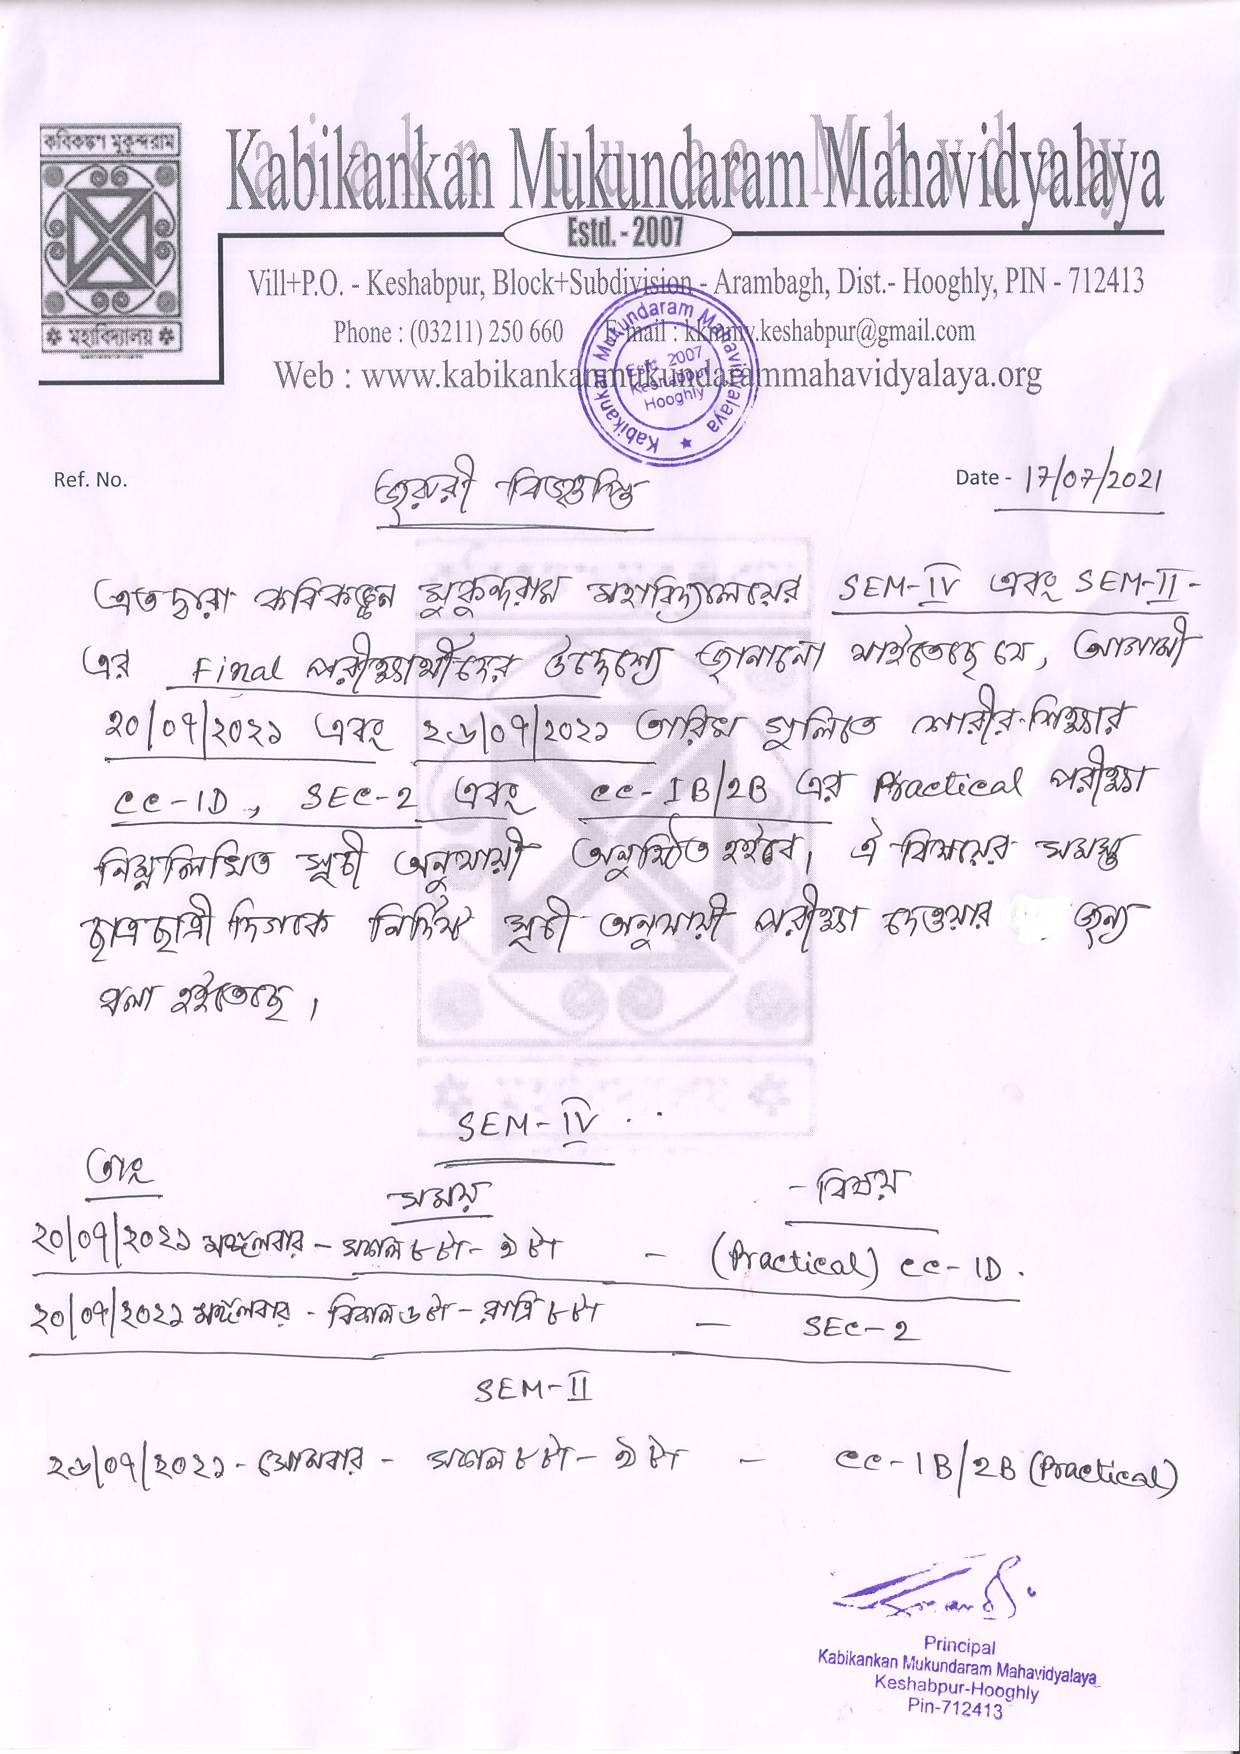 কবিকঙ্কণ মুকুন্দরাম
মহাবিদ্যালয়
Kabikankan Mukundaram Mahavidyalaya
Estd. - 2007
Vill+P.O. - Keshabpur, Block+Subdivision - Arambagh, Dist.- Hooghly, PIN - 712413
Phone : (03211) 250 660 E-mail : kkmmv.keshabpur@gmail.com
Web : www.kabikankanmukundarammahavidyalaya.org
Kabikankan Mukundaram Mahavidyalaya
Estd. 2007
Keshabpur
Hooghly
Ref. No.
জরুরী বিজ্ঞপ্তি
Date - 17/07/2021
এতদ্বারা কবিকঙ্কন মুকুন্দরাম মহাবিদ্যালয়ের SEM-IV এবং SEM-II-
এর Final পরীক্ষার্থীদের উদ্দেশ্যে জানানো যাইতেছে যে, আগামী
২০/০৭/২০২১ এবং ২৬/০৭/২০২১ তারিখ গুলিতে শারীর-শিক্ষার
CC-1D, SEC-2 এবং CC-1B/2B এর Practical পরীক্ষা
নিম্নলিখিত সূচী অনুযায়ী অনুষ্ঠিত হইবে। ঐ বিষয়ের সমস্ত
ছাত্রছাত্রী দিগকে নির্দিষ্ট সূচী অনুযায়ী পরীক্ষা দেওয়ার জন্য
বলা হইতেছে।
SEM-IV
তাং সময় - বিষয়
২০/০৭/২০২১ মঙ্গলবার - সকাল ৮টা - ৯টা - (Practical) CC-1D.
২০/০৭/২০২১ মঙ্গলবার - বিকাল ৬টা - রাত্রি ৮টা - SEC-2
SEM-II
২৬/০৭/২০২১ - সোমবার - সকাল ৮টা - ৯টা - CC-1B/2B (Practical)
Principal
Kabikankan Mukundaram Mahavidyalaya
Keshabpur-Hooghly
Pin-712413